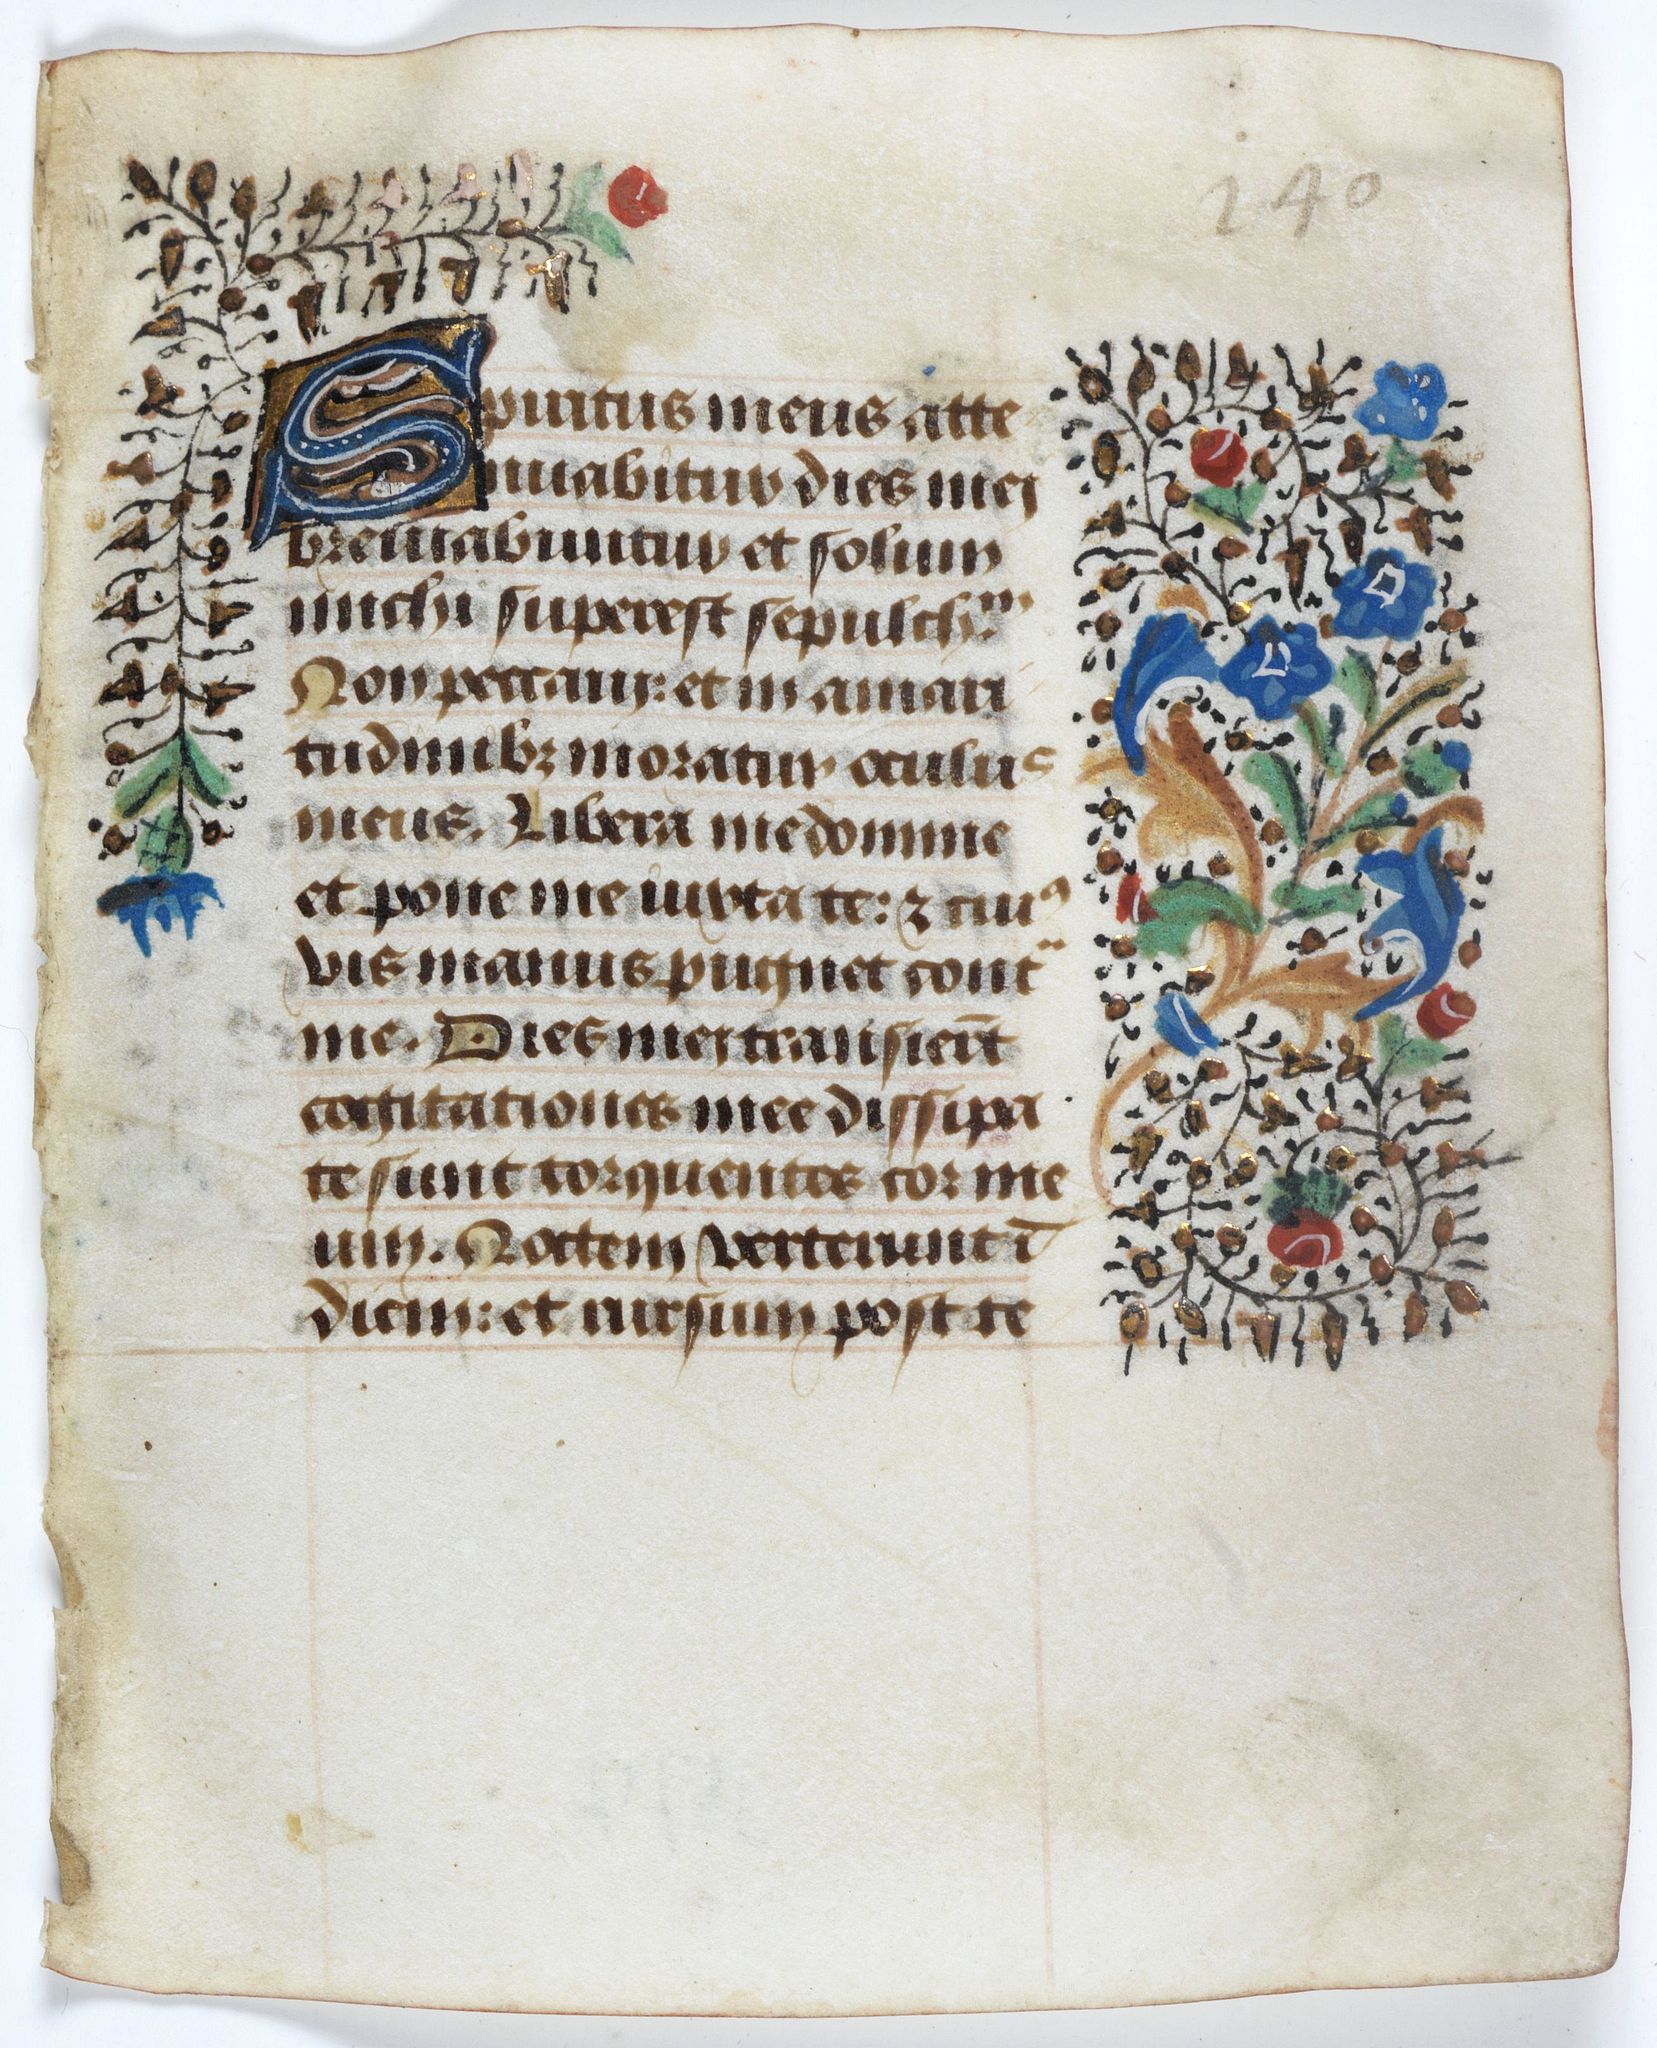 240
Spiritus meus atte
nuabitur dies mei
breuiabuntur et solum
michi superest sepulch.m
Non peccaui: et in amari
tudinibꝫ moratur oculus
meus. Libera me domine
et pone me iuxta te: ⁊ cuiꝰ
vis manus pugnet cont̃
me. Dies mei transier̃t
cogitationes mee dissipa
te sunt torquentes cor me
um. Noctem verterunt ī
diem: et rursum post te